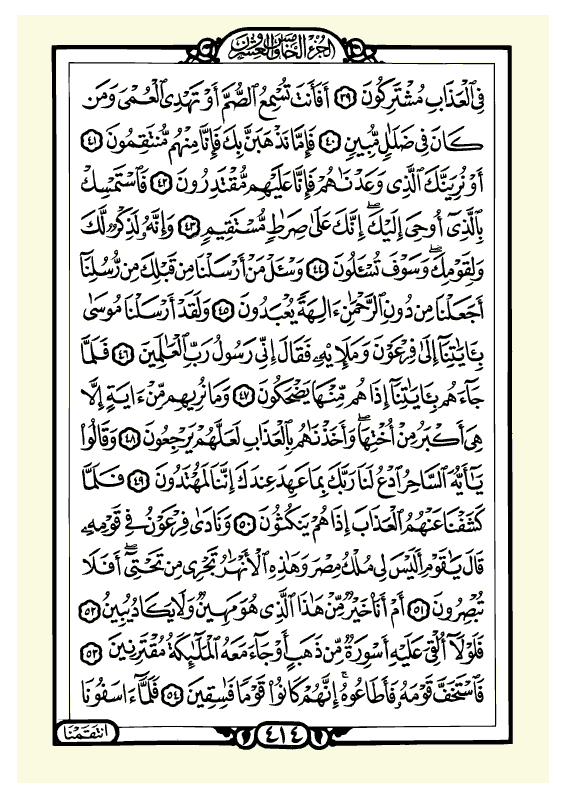 الجزء الخامس والعشرون
فِى ٱلْعَذَابِ مُشْتَرِكُونَ ٣٩ أَفَأَنتَ تُسْمِعُ ٱلصُّمَّ أَوْ تَهْدِى ٱلْعُمْىَ وَمَن
كَانَ فِى ضَلَٰلٍ مُّبِينٍ ٤٠ فَإِمَّا نَذْهَبَنَّ بِكَ فَإِنَّا مِنْهُم مُّنتَقِمُونَ ٤١
أَوْ نُرِيَنَّكَ ٱلَّذِى وَعَدْنَٰهُمْ فَإِنَّا عَلَيْهِم مُّقْتَدِرُونَ ٤٢ فَٱسْتَمْسِكْ
بِٱلَّذِىٓ أُوحِىَ إِلَيْكَ ۖ إِنَّكَ عَلَىٰ صِرَٰطٍ مُّسْتَقِيمٍ ٤٣ وَإِنَّهُۥ لَذِكْرٌ لَّكَ
وَلِقَوْمِكَ ۖ وَسَوْفَ تُسْـَٔلُونَ ٤٤ وَسْـَٔلْ مَنْ أَرْسَلْنَا مِن قَبْلِكَ مِن رُّسُلِنَآ
أَجَعَلْنَا مِن دُونِ ٱلرَّحْمَٰنِ ءَالِهَةً يُعْبَدُونَ ٤٥ وَلَقَدْ أَرْسَلْنَا مُوسَىٰ
بِـَٔايَٰتِنَآ إِلَىٰ فِرْعَوْنَ وَمَلَإِي۟هِۦ فَقَالَ إِنِّى رَسُولُ رَبِّ ٱلْعَٰلَمِينَ ٤٦ فَلَمَّا
جَآءَهُم بِـَٔايَٰتِنَآ إِذَا هُم مِّنْهَا يَضْحَكُونَ ٤٧ وَمَا نُرِيهِم مِّنْ ءَايَةٍ إِلَّا
هِىَ أَكْبَرُ مِنْ أُخْتِهَا ۖ وَأَخَذْنَٰهُم بِٱلْعَذَابِ لَعَلَّهُمْ يَرْجِعُونَ ٤٨ وَقَالُوا۟
يَٰٓأَيُّهَ ٱلسَّاحِرُ ٱدْعُ لَنَا رَبَّكَ بِمَا عَهِدَ عِندَكَ إِنَّنَا لَمُهْتَدُونَ ٤٩ فَلَمَّا
كَشَفْنَا عَنْهُمُ ٱلْعَذَابَ إِذَا هُمْ يَنكُثُونَ ٥٠ وَنَادَىٰ فِرْعَوْنُ فِى قَوْمِهِۦ
قَالَ يَٰقَوْمِ أَلَيْسَ لِى مُلْكُ مِصْرَ وَهَٰذِهِ ٱلْأَنْهَٰرُ تَجْرِى مِن تَحْتِىٓ ۖ أَفَلَا
تُبْصِرُونَ ٥١ أَمْ أَنَا۠ خَيْرٌ مِّنْ هَٰذَا ٱلَّذِى هُوَ مَهِينٌ وَلَا يَكَادُ يُبِينُ ٥٢
فَلَوْلَآ أُلْقِىَ عَلَيْهِ أَسْوِرَةٌ مِّن ذَهَبٍ أَوْ جَآءَ مَعَهُ ٱلْمَلَٰٓئِكَةُ مُقْتَرِنِينَ ٥٣
فَٱسْتَخَفَّ قَوْمَهُۥ فَأَطَاعُوهُ ۚ إِنَّهُمْ كَانُوا۟ قَوْمًا فَٰسِقِينَ ٥٤ فَلَمَّآ ءَاسَفُونَا
انتقمنا
٤١٤